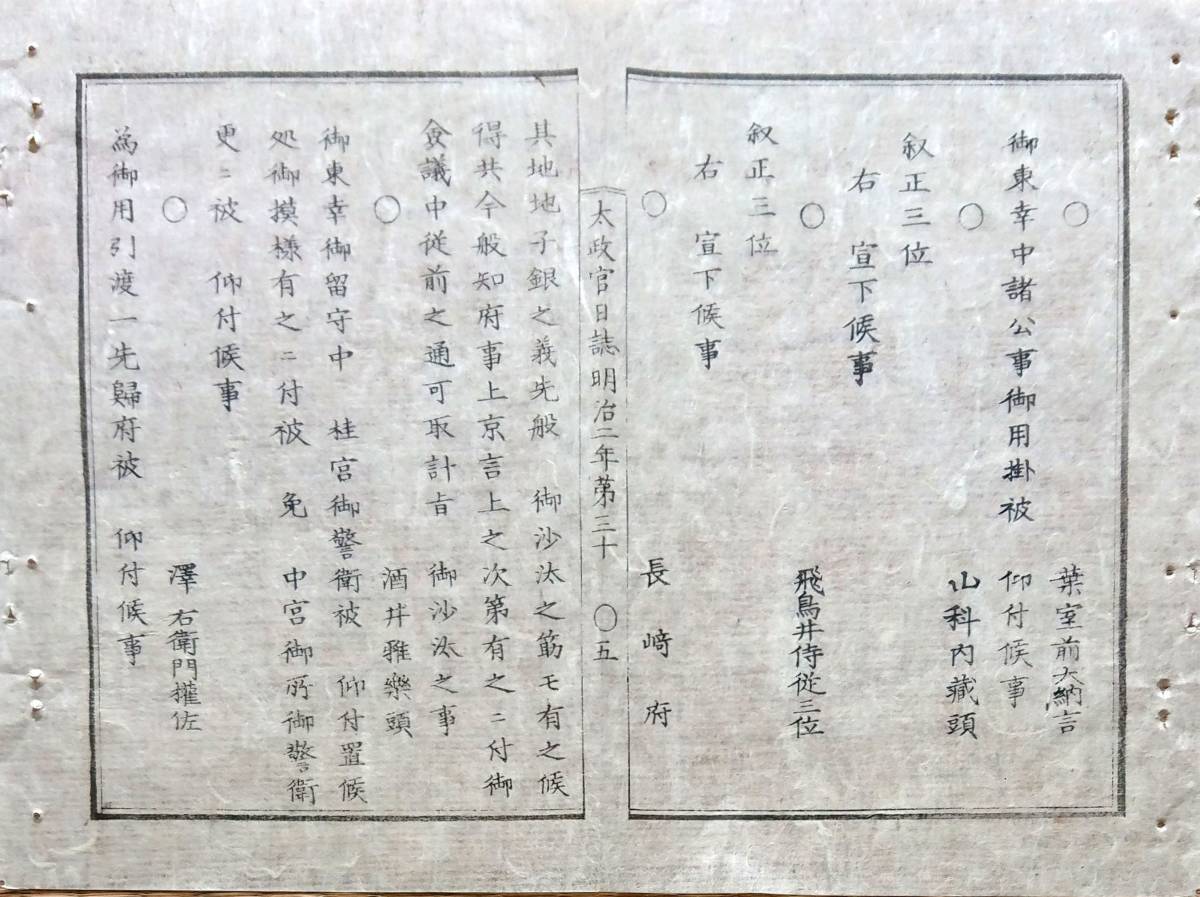 ○
葉室前大納言
御東幸中諸公事御用掛被 仰付候事
○
山科内蔵頭
叙正三位
右 宣下候事
○
飛鳥井侍従三位
叙正三位
右 宣下候事
○
長﨑府
太政官日誌明治二年第三十 ○五
其地地子銀之義先般 御沙汰之筋モ有之候
得共今般知府事上京言上之次第有之ニ付御
僉議中従前之通可取計旨 御沙汰之事
○
酒井雅樂頭
御東幸御留守中 桂宮御警衛被 仰付置候
処御摸様有之ニ付被 免 中宮御所御警衛
更ニ被 仰付候事
○
澤右衛門權佐
為御用引渡一先歸府被 仰付候事